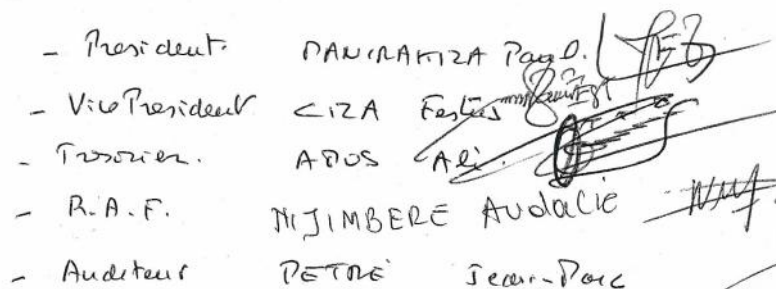 - President. DANIRAKIZA Paul.
- Vice President CIZA Festus
- Tresorier. ADOS Ali.
- R.A.F. NIJIMBERE Audacie
- Auditeur PETRE Jean-Marc